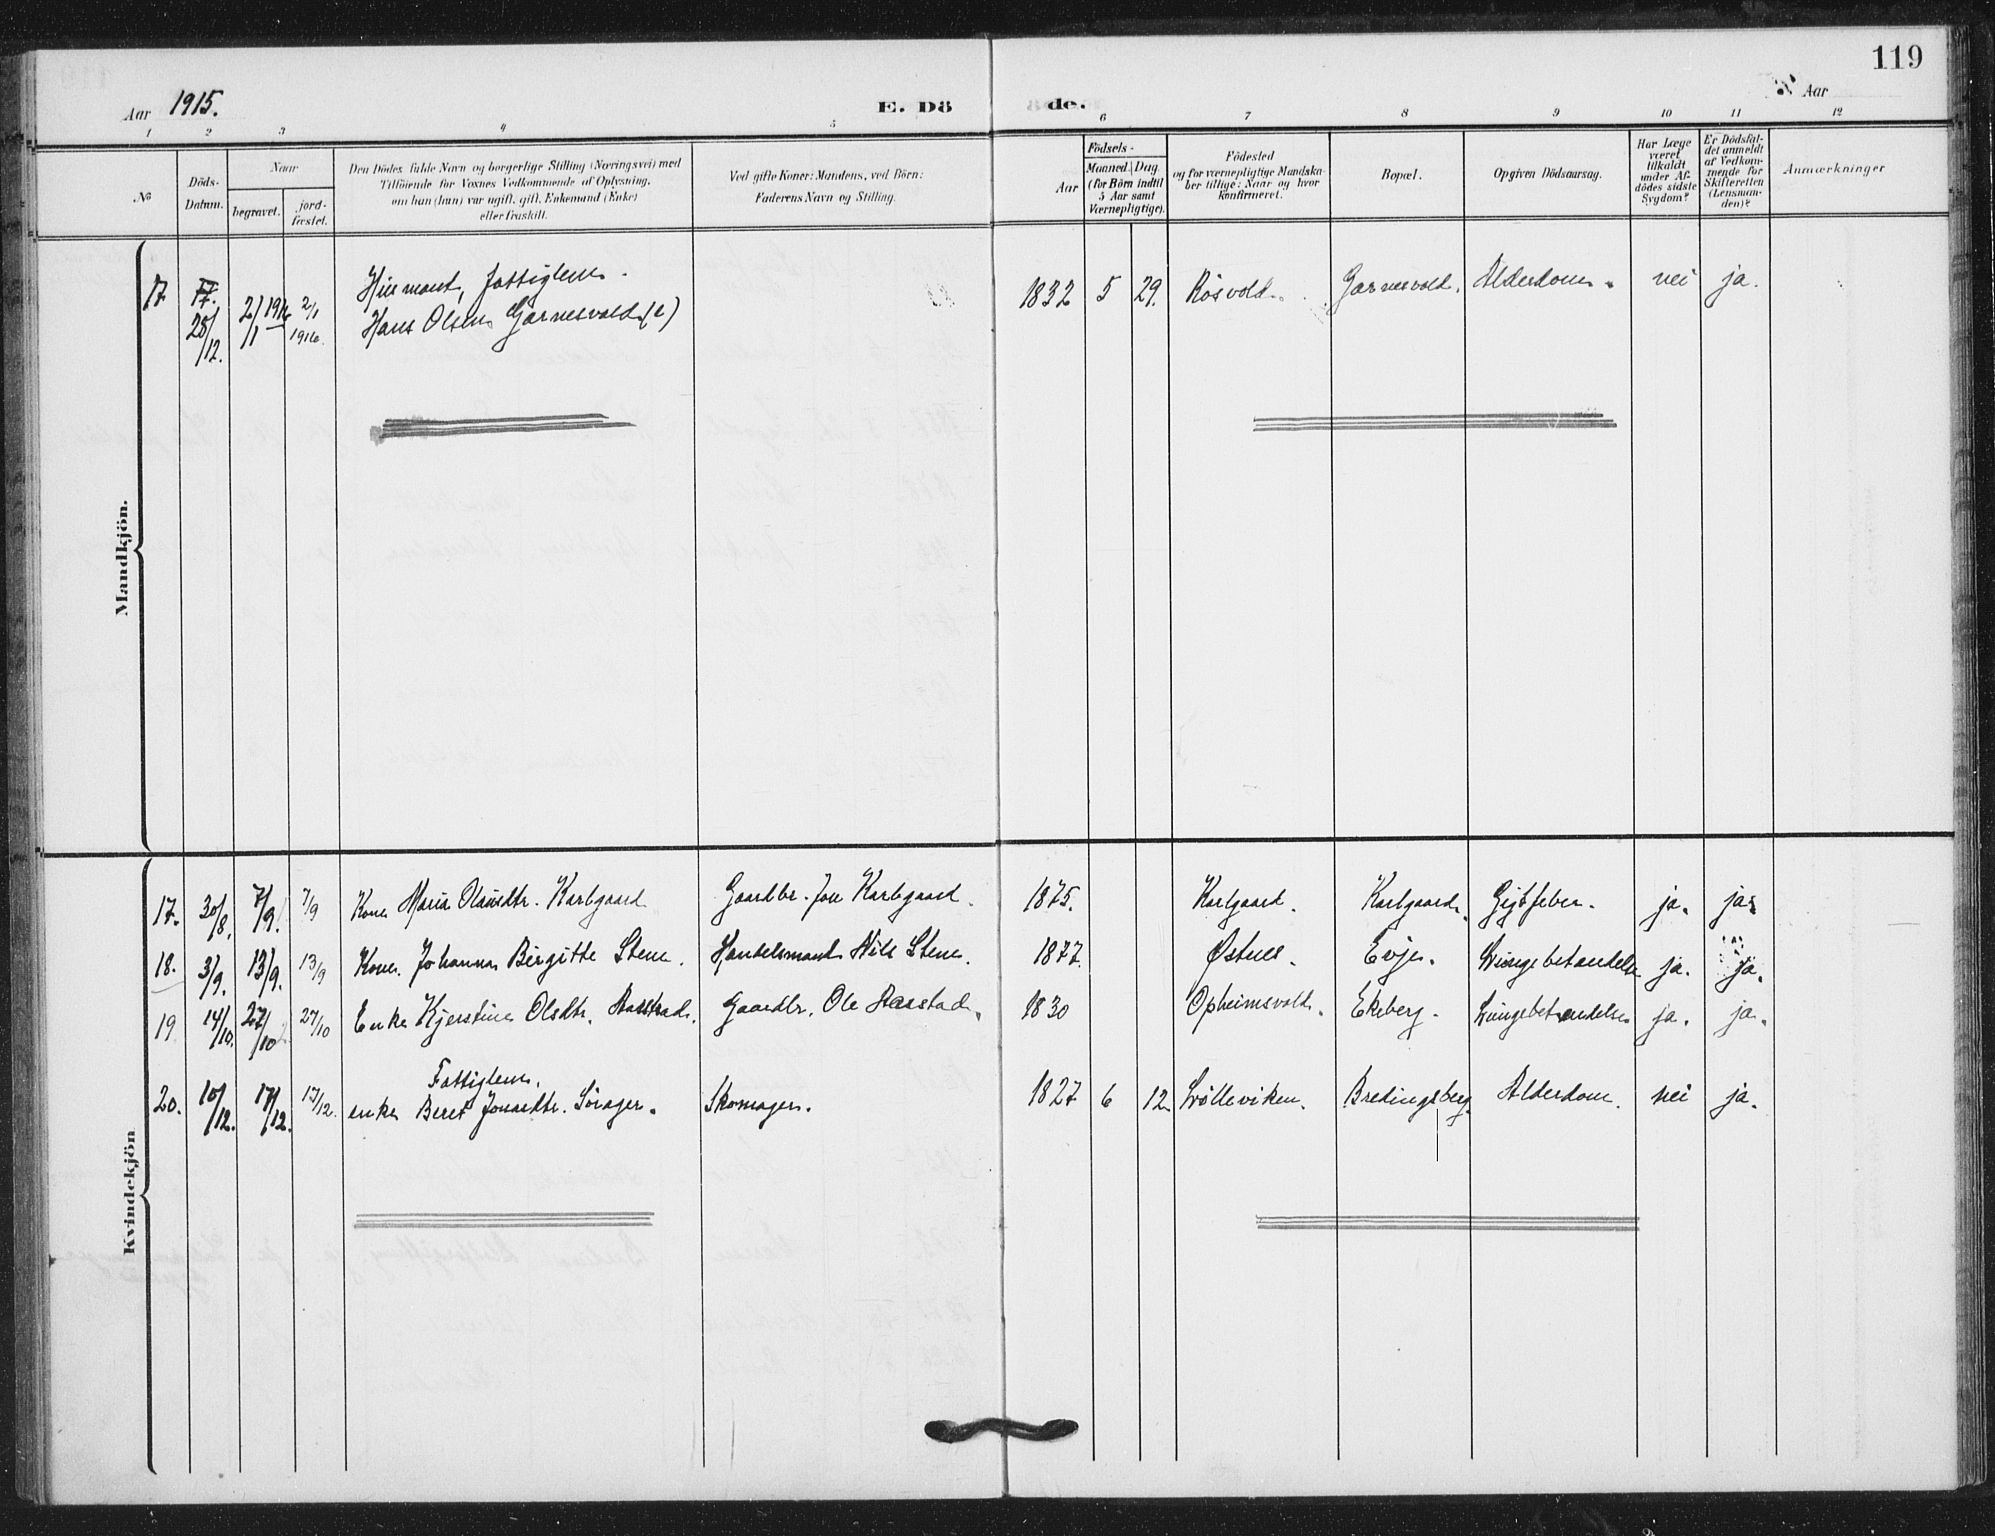 119
Aar 1915.
E. Döde.
Aar
1 2 3 4 5 6 7 8 9 10 11 12
No
Döds-
Datum.
Naar
begravet.
jord-
fæstet.
Den Dödes fulde Navn og borgerlige Stilling (Næringsvei) med
Tilföiende for Voxnes Vedkommende af Oplysning,
om han (hun) var ugift, gift, Enkemand (Enke)
eller fraskilt.
Ved gifte Koner: Mandens, ved Börn:
Faderens Navn og Stilling.
Födsels-
Aar
Maaned. Dag
(for Börn indtil
5 Aar samt
Værnepligtige).
Födested
og for værnepligtige Mandska-
ber tillige: Naar og hvor
konfirmeret.
Bopæl.
Opgiven Dödsaarsag.
Har Læge
været
tilkaldt
under Af-
dödes sidste
Sygdom?
Er Dödsfal-
det anmeldt
af Vedkom-
mende for
Skifteretten
(Lensman-
den)?
Anmærkninger
Mandkjön.
17 28/12. 2/1 1916 2/1 1916.
Huusmand, Fattiglem
Hans Olsen Garnesvold (e)
1832 5 29. Rösvold. Garnesvold. Alderdom. nei ja.
Kvindekjön
17. 30/8. 7/9. 7/9 Kone Maria Olausdtr. Karlgaard Gaardbr. Jon Karlgaard. 1875. Karlgaard. Karlgaard. Gigtfeber. ja. ja.
18. 3/9. 13/9. 13/9 Kone. Johanna Birgitte Stene. Handelsmand Nils Stene. 1877. Østnes. Evje. Lungebetændelse ja. ja.
19 14/10. 27/10 27/10 Enke Kjerstine Olsdtr. Raastad. Gaardbr. Ole Raastad. 1830 Opheimsvold. Ekeberg. Lungebetændelse ja. ja.
Fattiglem.
20. 10/12. 17/12. 17/12. enke Beret Jonasdtr. Sörager. Skomager. 1827 6 12. Trölleviken. Bredingsberg Alderdom. nei ja.